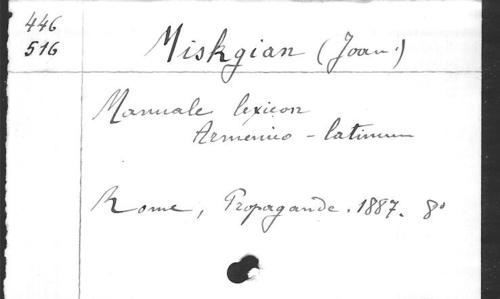 446
516
Miskgian (Joan.)
Manuale lexicon
Armenico - latinum
Rome, Propagande. 1887. 8°